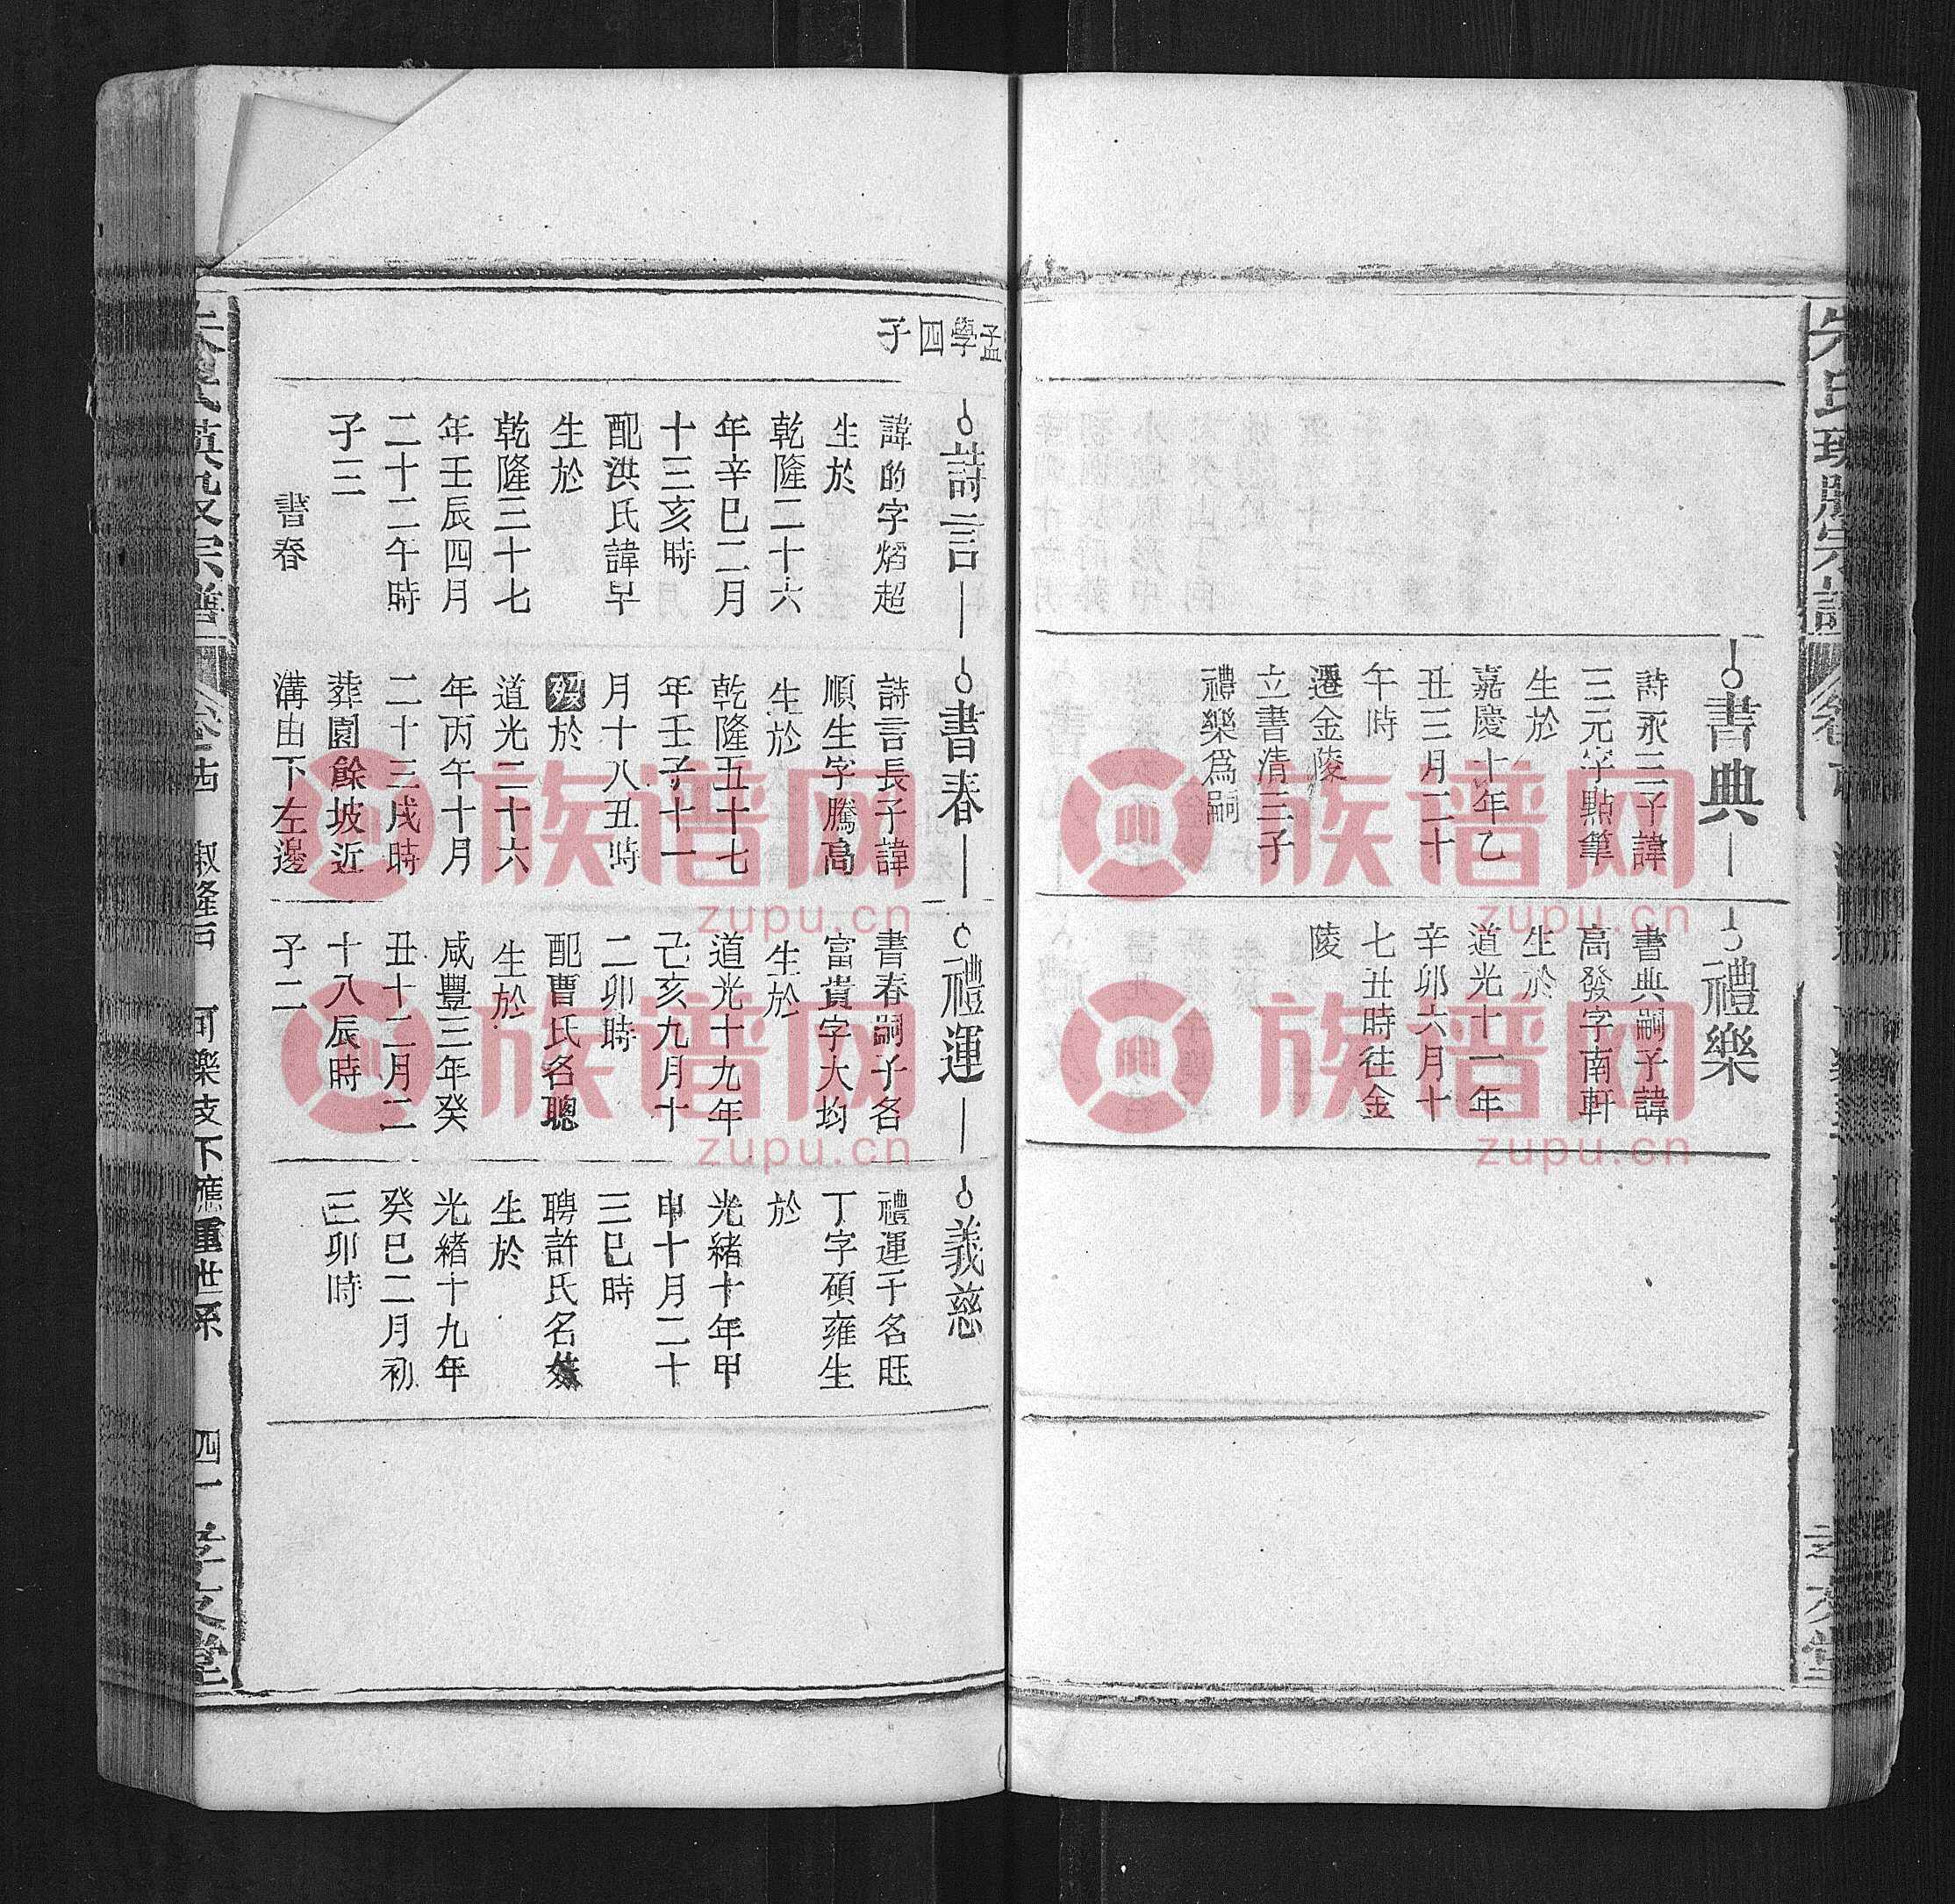 書典
詩永三子諱
三元字點筆
生於
嘉慶十年乙
丑三月二十
午時
遷金陵
立書清三子
禮樂爲嗣
禮樂
書典嗣子諱
高發字南軒
生於
道光十一年
辛卯六月十
七丑時往金
陵
孟學四子
詩言
諱的字熖超
生於
乾隆二十六
年辛巳二月
十三亥時
配洪氏諱早
生於
乾隆三十七
年壬辰四月
二十二午時
子三
書春
書春
詩言長子諱
順生字騰高
生於
乾隆五十七
年壬子十一
月十八丑時
歿於
道光二十六
年丙午十月
二十三戌時
葬園餘坡近
溝由下左邊
禮運
書春嗣子名
富貴字大均
生於
道光十九年
己亥九月十
二卯時
配曹氏名聰
生於
咸豐三年癸
丑十二月二
十八辰時
子二
義慈
禮運子名旺
丁字碩雍生
於
光緒十年甲
申十月二十
三巳時
聘許氏名
生於
光緒十九年
癸巳二月初
三卯時
宗譜
四一
族谱网
zupu.cn
族谱网
zupu.cn
族谱网
zupu.cn
族谱网
zupu.cn